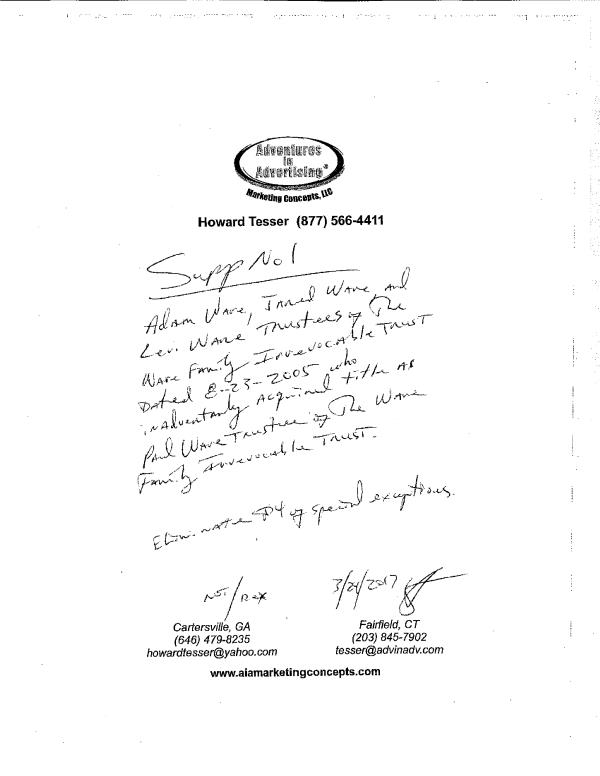 Adventures
in
Advertising®
Marketing Concepts, LLC
Howard Tesser (877) 566-4411
Supp No 1
Adam Ware, Jared Ware, and
Levi Ware Trustees of The
Ware Family Irrevocable Trust
Dated 8-23-2005 who
inadvertantly acquired title as
Paul Ware Trustee of The Ware
Family Irrevocable Trust.
Eliminate #4 of special exceptions.
3/24/2017
Cartersville, GA
(646) 479-8235
howardtesser@yahoo.com
Fairfield, CT
(203) 845-7902
tesser@advinadv.com
www.aiamarketingconcepts.com